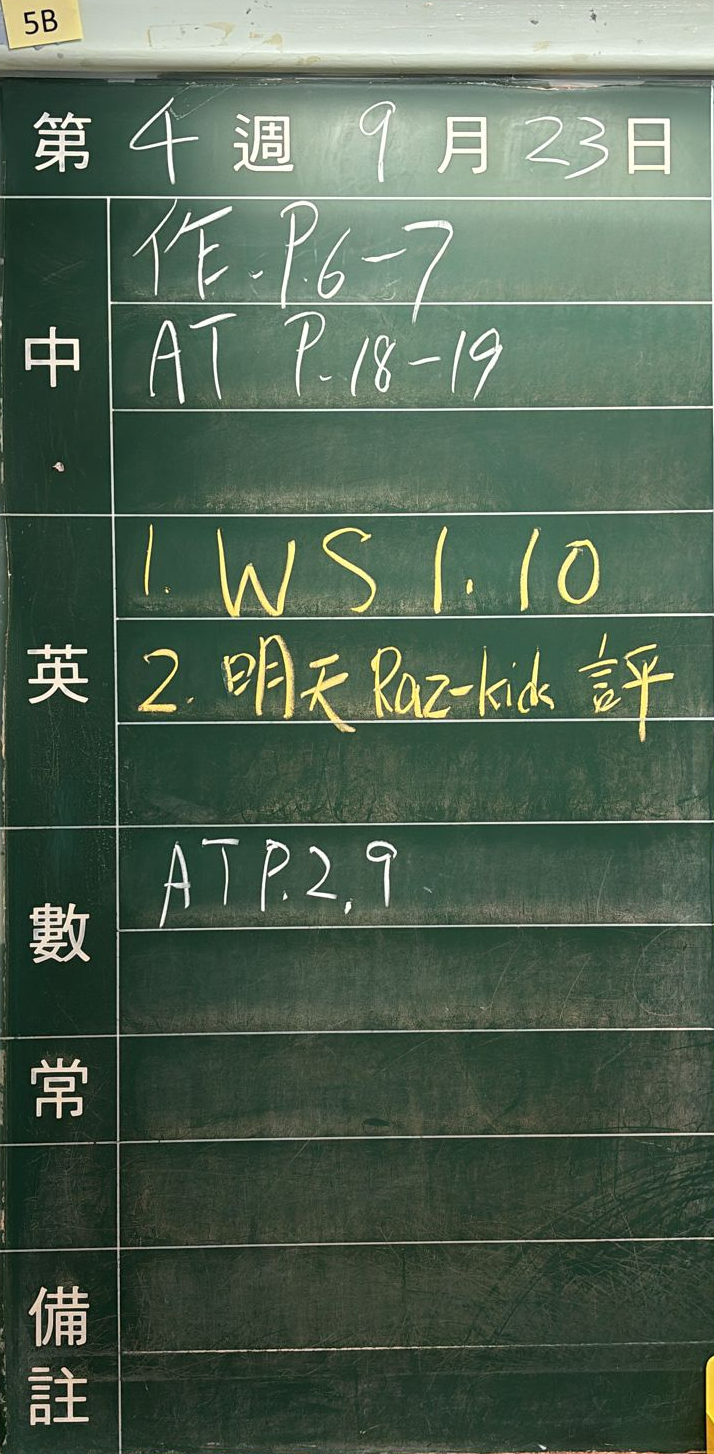 5B
第 4 週 9 月 23 日
中
作.P.6-7
AT P.18-19
英
1. WS 1.10
2. 明天 Raz-kids 評
數
ATP.2,9
常
備註